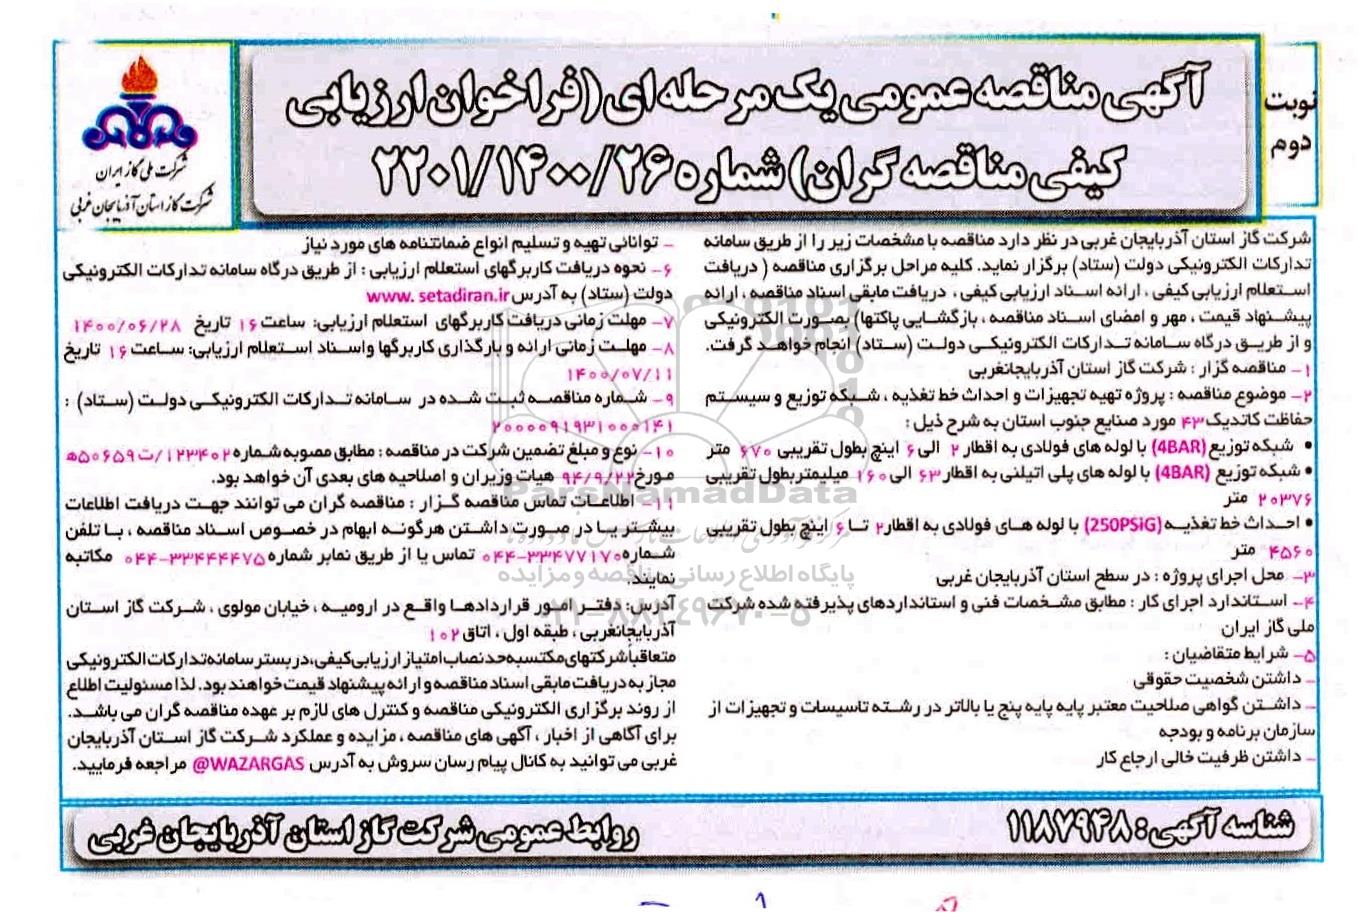 نوبت
دوم
آگهی مناقصه عمومی یک مرحله ای (فراخوان ارزیابی
کیفی مناقصه گران) شماره ۲۲۰۱/۱۴۰۰/۲۶
شرکت ملی گاز ایران
شرکت گاز استان آذربایجان غربی
شرکت گاز استان آذربایجان غربی در نظر دارد مناقصه با مشخصات زیر را از طریق سامانه
تدارکات الکترونیکی دولت (ستاد) برگزار نماید. کلیه مراحل برگزاری مناقصه ( دریافت
استعلام ارزیابی کیفی ، ارائه اسناد ارزیابی کیفی ، دریافت مابقی اسناد مناقصه ، ارائه
پیشنهاد قیمت ، مهر و امضای اسناد مناقصه ، بازگشایی پاکتها) بصورت الکترونیکی
و از طریق درگاه سامانه تدارکات الکترونیکی دولت (ستاد) انجام خواهد گرفت.
۱- مناقصه گزار : شرکت گاز استان آذربایجانغربی
۲- موضوع مناقصه : پروژه تهیه تجهیزات و احداث خط تغذیه ، شبکه توزیع و سیستم
حفاظت کاتدیک ۴۳ مورد صنایع جنوب استان به شرح ذیل :
• شبکه توزیع (4BAR) با لوله های فولادی به اقطار ۲ الی ۶ اینچ بطول تقریبی ۶۷۰ متر
• شبکه توزیع (4BAR) با لوله های پلی اتیلنی به اقطار ۶۳ الی ۱۶۰ میلیمتر بطول تقریبی
۲۰۳۷۶ متر
• احداث خط تغذیه (250PSiG) با لوله های فولادی به اقطار ۲ تا ۶ اینچ بطول تقریبی
۴۵۶۰ متر
۳- محل اجرای پروژه : در سطح استان آذربایجان غربی
۴- استاندارد اجرای کار : مطابق مشخصات فنی و استانداردهای پذیرفته شده شرکت
ملی گاز ایران
۵- شرایط متقاضیان :
- داشتن شخصیت حقوقی
- داشتن گواهی صلاحیت معتبر پایه پایه پنج یا بالاتر در رشته تاسیسات و تجهیزات از
سازمان برنامه و بودجه
- داشتن ظرفیت خالی ارجاع کار
- توانائی تهیه و تسلیم انواع ضمانتنامه های مورد نیاز
۶- نحوه دریافت کاربرگهای استعلام ارزیابی : از طریق درگاه سامانه تدارکات الکترونیکی
دولت (ستاد) به آدرس www. setadiran.ir
۷- مهلت زمانی دریافت کاربرگهای استعلام ارزیابی: ساعت ۱۶ تاریخ ۱۴۰۰/۰۶/۲۸
۸- مهلت زمانی ارائه و بارگذاری کاربرگها واسناد استعلام ارزیابی: ساعت ۱۶ تاریخ
۱۴۰۰/۰۷/۱۱
۹- شماره مناقصه ثبت شده در سامانه تدارکات الکترونیکی دولت (ستاد) :
۲۰۰۰۰۹۱۹۳۱۰۰۰۱۴۱
۱۰- نوع و مبلغ تضمین شرکت در مناقصه : مطابق مصوبه شماره ۱۲۳۴۰۲/ت۵۰۶۵۹ه
مورخ ۹۴/۹/۲۲ هیات وزیران و اصلاحیه های بعدی آن خواهد بود.
۱۱- اطلاعات تماس مناقصه گزار : مناقصه گران می توانند جهت دریافت اطلاعات
بیشتر یا در صورت داشتن هرگونه ابهام در خصوص اسناد مناقصه ، با تلفن
شماره ۳۳۴۷۷۱۷۰-۰۴۴ تماس یا از طریق نمابر شماره ۳۳۴۴۴۴۷۵-۰۴۴ مکاتبه
نمایند.
آدرس: دفتر امور قراردادها واقع در ارومیه ، خیابان مولوی ، شرکت گاز استان
آذربایجانغربی ، طبقه اول ، اتاق ۱۰۲
متعاقباً شرکتهای مکتسبه حد نصاب امتیاز ارزیابی کیفی، در بستر سامانه تدارکات الکترونیکی
مجاز به دریافت مابقی اسناد مناقصه و ارائه پیشنهاد قیمت خواهند بود. لذا مسئولیت اطلاع
از روند برگزاری الکترونیکی مناقصه و کنترل های لازم بر عهده مناقصه گران می باشد.
برای آگاهی از اخبار ، آگهی های مناقصه ، مزایده و عملکرد شرکت گاز استان آذربایجان
غربی می توانید به کانال پیام رسان سروش به آدرس @WAZARGAS مراجعه فرمایید.
ParsNamadData
پایگاه اطلاع رسانی مناقصه و مزایده
۰۲۱-۸۸۳۴۹۶۷۰-۵
شناسه آگهی: ۱۱۸۷۹۴۸
روابط عمومی شرکت گاز استان آذربایجان غربی